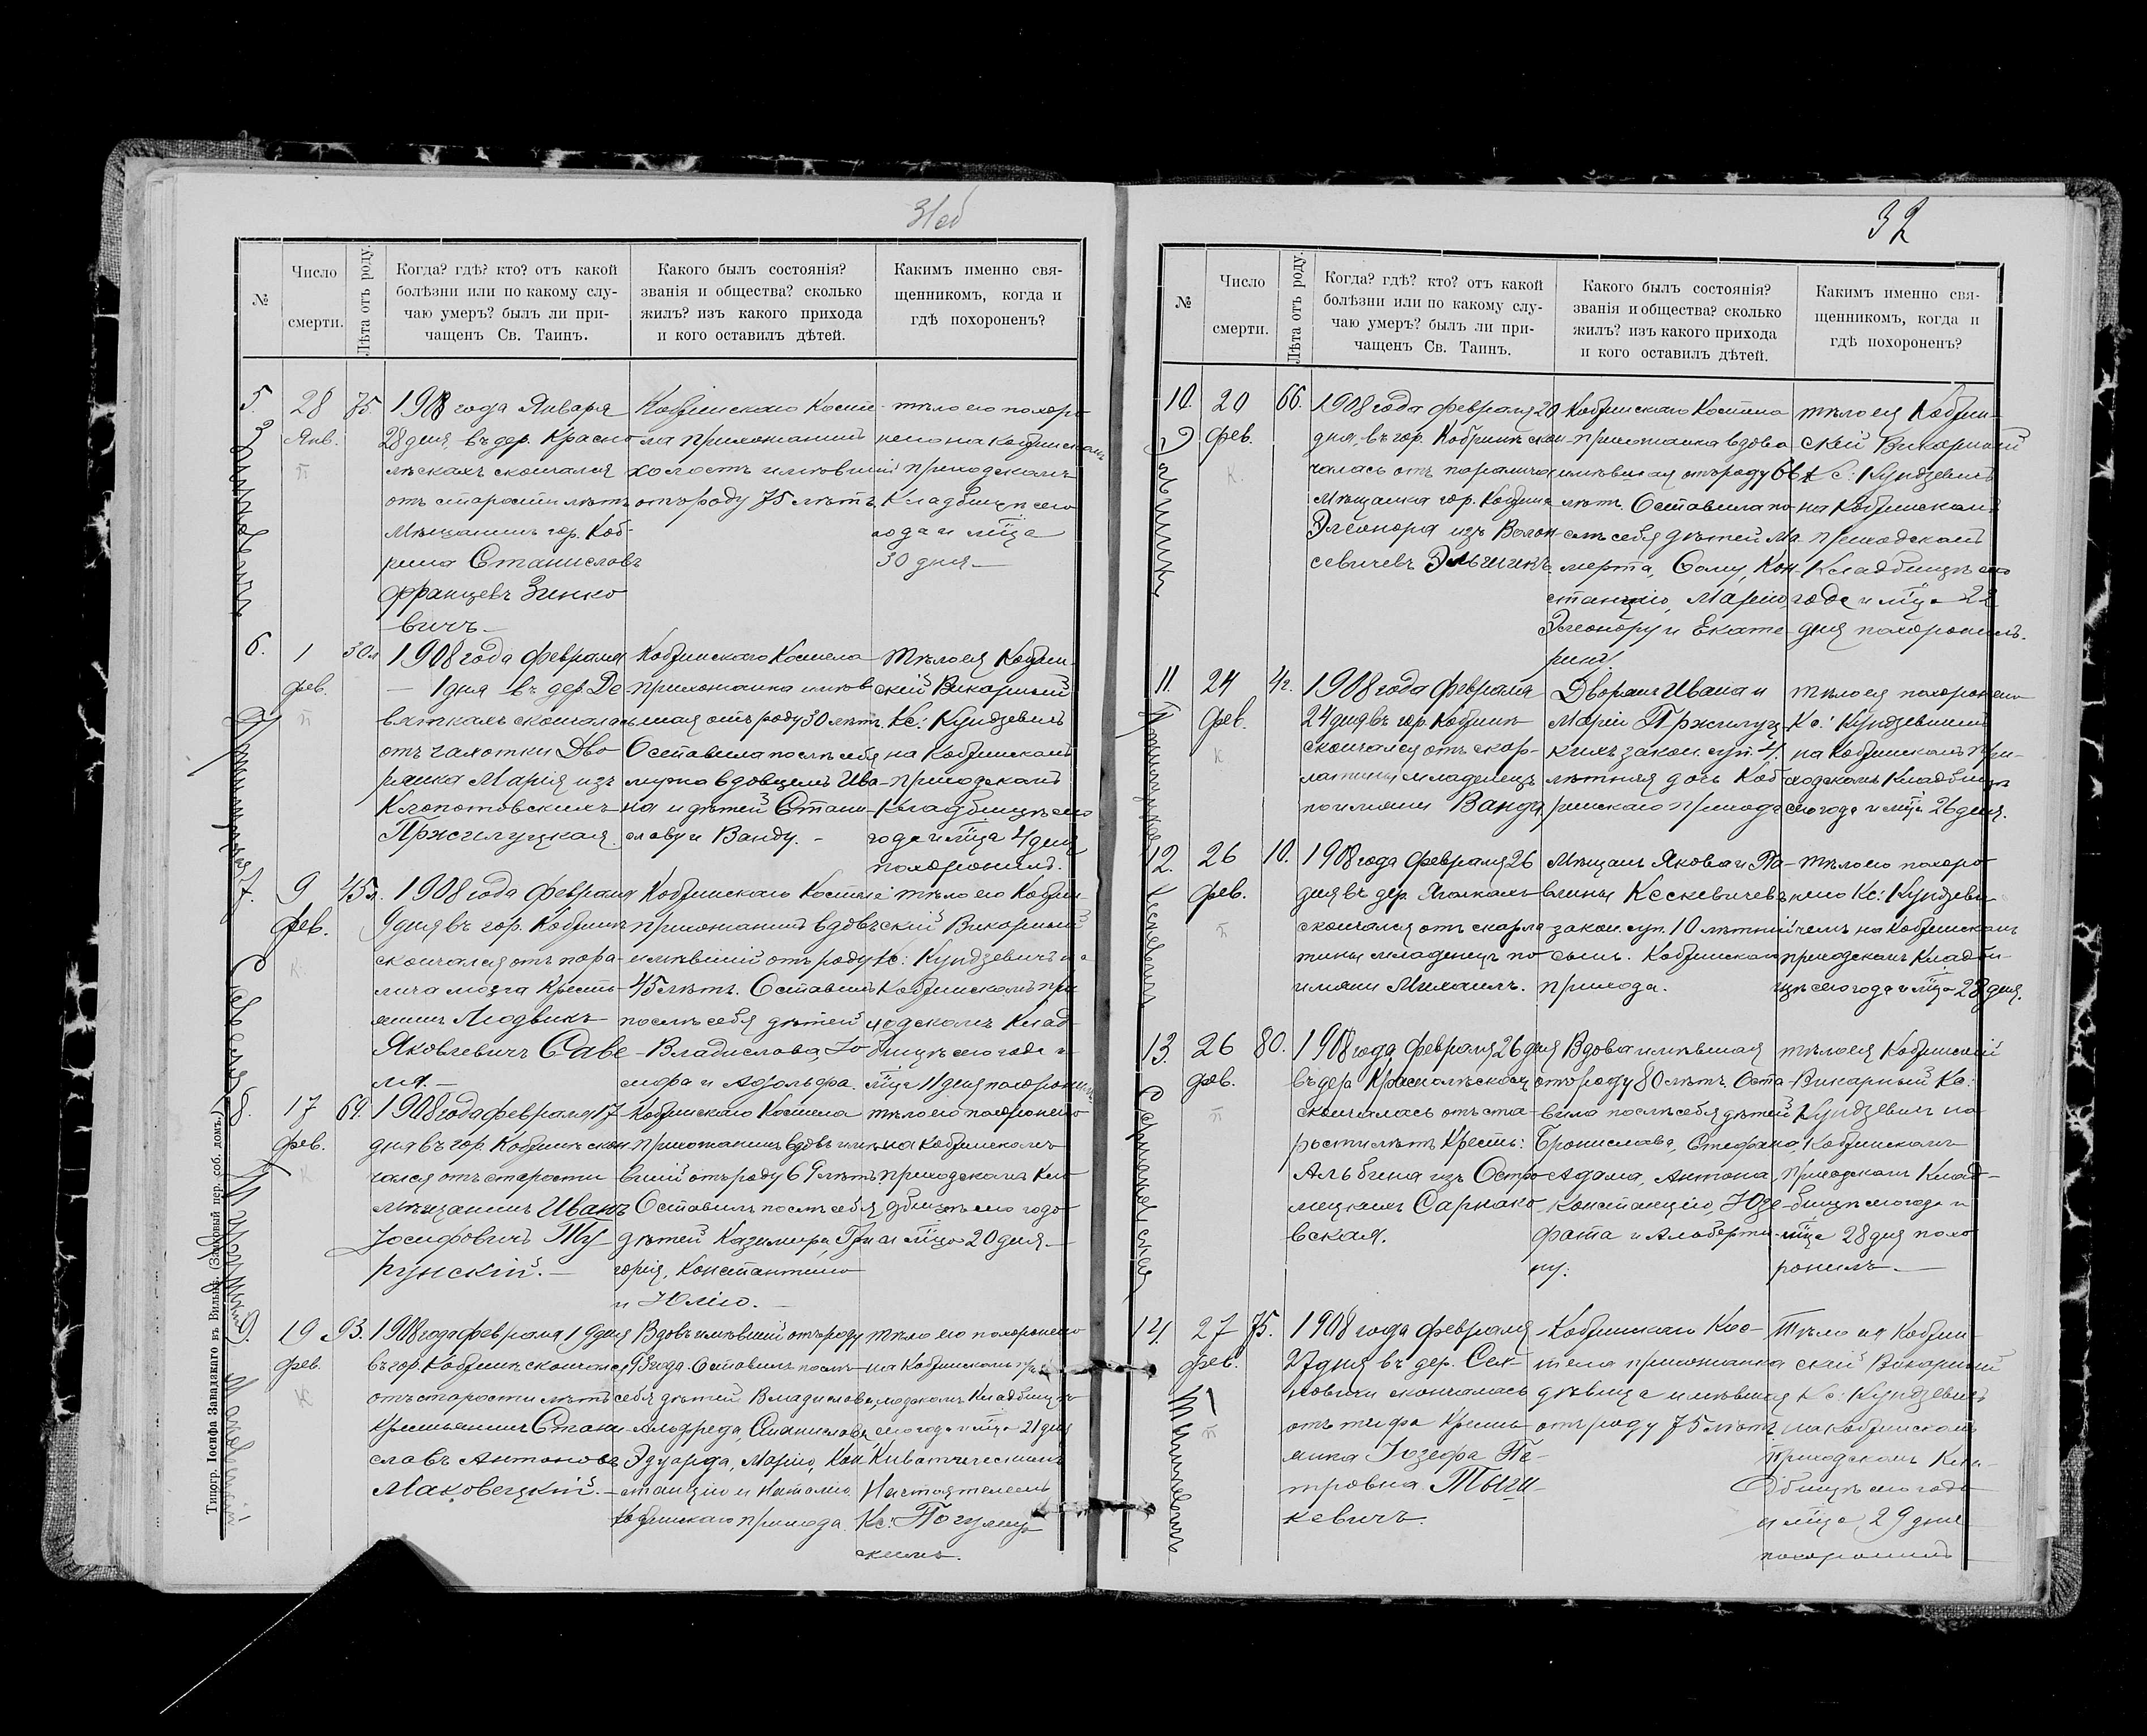 31об
№
Число
смерти.
Лѣта отъ роду.
Когда? гдѣ? кто? отъ какой
болѣзни или по какому слу-
чаю умеръ? былъ ли при-
чащенъ Св. Таинъ.
Какого былъ состоянія?
званія и общества? сколько
жилъ? изъ какого прихода
и кого оставилъ дѣтей.
Какимъ именно свя-
щенникомъ, когда и
гдѣ похороненъ?
5.
Зинковичъ
28
Янв.
п
75
1908 года Января
28 дня, въ дер. Красно
лѣскахъ скончался
отъ старости лѣтъ
Мѣщанинъ гор. Коб-
рина Станиславъ
Францевъ Зинко
вичъ.—
Кобринскаго Косте-
ла прихожанинъ
холостъ имѣвшій
отъ роду 75 лѣтъ.
тѣло его похоро
нено на Кобринскомъ
приходскомъ
Кладбищѣ сего
года и м̃ца
30 дня—
6.
Пржилуцкая
1
фев.
п
30 л
1908 года февраля
— 1 дня въ дер. Де
вяткахъ скончалась
отъ чахотки Дво
рянка Марія изъ
Клопотовскихъ
Пржилуцкая.
Кобринскаго Костела
прихожанка имѣв
шая отъ роду 30 лѣтъ.
Оставила послѣ себя
мужа вдовцемъ Ива-
на и дѣтей Стани-
славу и Ванду. -
Тѣло ея Кобрин-
скій Викарный
Кс: Кундзевичъ
на Кобринскомъ
приходскомъ
Кладбищѣ сего
года и м̃ца 4 дня
похоронилъ.
7.
Савеля
9
фев.
к.
45 л.
1908 года февраля
9 дня въ гор. Кобринѣ
скончался отъ пара-
лича мозга Кресть-
янинъ Людвикъ
Яковлевичъ Саве
ля.—
Кобринскаго Костела
прихожанинъ вдовъ
имѣвшій отъ роду
45 лѣтъ. Оставилъ
послѣ себя дѣтей
Владислава, Іо
сифа и Адольфа.
тѣло его Кобрин-
скій Викарный
Кс: Кундзевичъ на
Кобринскомъ при
ходскомъ Клад-
бищѣ сего года и
м̃ца 11 дня похоронилъ
8.
Турунскій
17
фев.
к
69.
1908 года февраля 17
дня въ гор. Кобринѣ скон
чался отъ старости
мѣщанинъ Иванъ
Іосифовичъ Ту
рунскій.—
Кобринскаго Костела
прихожанинъ вдовъ имѣ
вшій отъ роду 69 лѣтъ
Оставилъ послѣ себя
дѣтей Казимира, Гри
горія, Константина
и Юлію.—
тѣло его похоронено
на Кобринскомъ
приходскомъ Кла
дбищѣ сего года
и м̃ца 20 дня.—
9.
Маковецкій
19
фев.
к
93.
1908 года февраля 19 дня
въ гор. Кобринѣ скончался
отъ старости лѣтъ
Крестьянинъ Стани
славъ Антоновъ
Маковецкій.—
Вдовъ имѣвшій отъ роду
93 года. Оставилъ послѣ
себя дѣтей Владислава,
Альфреда, Станислава,
Эдуарда, Марію, Кон
станцію и Наталію.
Кобринскаго прихода.
тѣло его похоронено
на Кобринскомъ при
ходскомъ Кладбищѣ
сего года и м̃ца 21 дня
Настоятелемъ
Кс:
скимъ.
Типогр. Іосифа Завадзкаго въ Вильнѣ. (Замковый пер. соб. домъ.)
32
№
Число
смерти.
Лѣта отъ роду.
Когда? гдѣ? кто? отъ какой
болѣзни или по какому слу-
чаю умеръ? былъ ли при-
чащенъ Св. Таинъ.
Какого былъ состоянія?
званія и общества? сколько
жилъ? изъ какого прихода
и кого оставилъ дѣтей.
Какимъ именно свя-
щенникомъ, когда и
гдѣ похороненъ?
10.
20
фев.
к.
66.
1908 года февраля 20
дня, въ гор. Кобринѣ скон-
чалась отъ паралича
мѣщанка гор. Кобрина
Элеонора изъ Волон-
севичевъ
Кобринскаго Костела
прихожанка вдова
имѣвшая отъ роду 66
лѣтъ. Оставила по
слѣ себя дѣтей
Кон
станцію, Марію
Элеонору и Екате
рину.
тѣло ея Кобрин-
скій Викарный
Кс: Кундзевичъ
на Кобринскомъ
приходскомъ
Кладбищѣ сего
года и м̃ца 22
дня похоронилъ.
11.
Пржилуцкая
24
фев.
к
4 г.
1908 года февраля
24 дня въ гор. Кобринѣ
скончался отъ скар-
латины младенецъ
по имени Ванда
Дворянъ Ивана и
Маріи Пржилуц-
кихъ закон. суп. 4
лѣтняя дочь Коб
ринскаго прихода
тѣло ея похоронено
Кс: Кундзевичемъ
на Кобринскомъ при-
ходскомъ Кладбищѣ
сего года и м̃ца 26 дня.
12.
Кескевичъ
26
фев.
п
10.
1908 года февраля 26
дня въ дер. Яголкахъ
скончался отъ скарла
тины младенецъ по
имени Михаилъ.
Мѣщанъ Якова и Па-
влины Кескевичевъ
закон. суп. 10 лѣтній
сынъ. Кобринскаго
прихода.
тѣло его похоро-
нено Кс: Кундзеви-
чемъ на Кобринскомъ
приходскомъ Кладби-
щѣ сего года и м̃ца 28 дня.
13.
Сарнаковская
26
фев.
п
80.
1908 года февраля 26 дня
скончалась отъ ста-
рости лѣтъ Кресть:
Альбина изъ Остро
мецкихъ Сарнако
вская.
Вдова имѣвшая
отъ роду 80 лѣтъ. Оста-
вила послѣ себя дѣтей
Бронислава, Стефана,
Адама, Антона,
Констанцію, Юзе-
фата и Альберти-
ну.
тѣло ея Кобринскій
Викарный Кс:
Кундзевичъ на
Кобринскомъ
приходскомъ Клад-
бищѣ сего года и
м̃ца 28 дня похо
ронилъ.—
14.
27
фев.
п
75.
1908 года февраля
27 дня въ дер. Сех-
новичи скончалась
отъ тифа Кресть-
янка Іозефа Пе-
тровна
кевичъ.
Кобринскаго Кос-
тела прихожанка
дѣвица имѣвшая
отъ роду 75 лѣтъ.
Тѣло ея Кобрин-
скій Викарный
Кс: Кундзевичъ
на Кобринскомъ
приходскомъ Кла-
дбищѣ сего года
и м̃ца 29 дня
похоронилъ